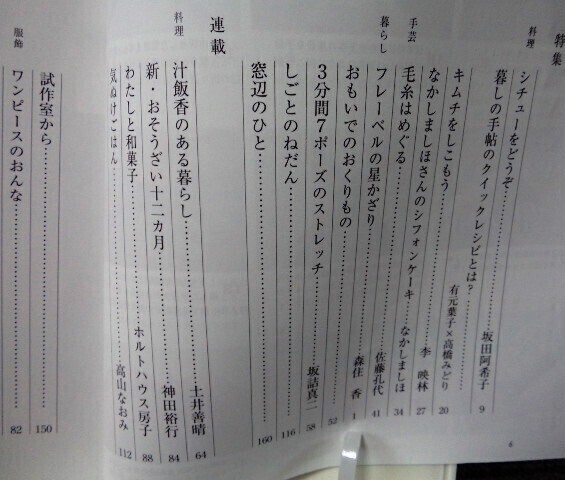 特集
料理
シチューをどうぞ……坂田阿希子 9
暮しの手帖のクイックレシピとは?……有元葉子×高橋みどり 20
キムチをしこもう……李 映林 27
なかしましほさんのシフォンケーキ……なかしましほ 34
手芸
毛糸はめぐる……佐藤孔代 41
暮らし
フレーベルの星かざり……森住 香 1
おもいでのおくりもの……52
3分間7ポーズのストレッチ……坂詰真二 58
しごとのねだん……116
窓辺のひと……160
連載
料理
汁飯香のある暮らし……土井善晴 64
新・おそうざい十二カ月……神田裕行 84
わたしと和菓子……ホルトハウス房子 88
気ぬけごはん……高山なおみ 112
服飾
試作室から……150
ワンピースのおんな……82
6